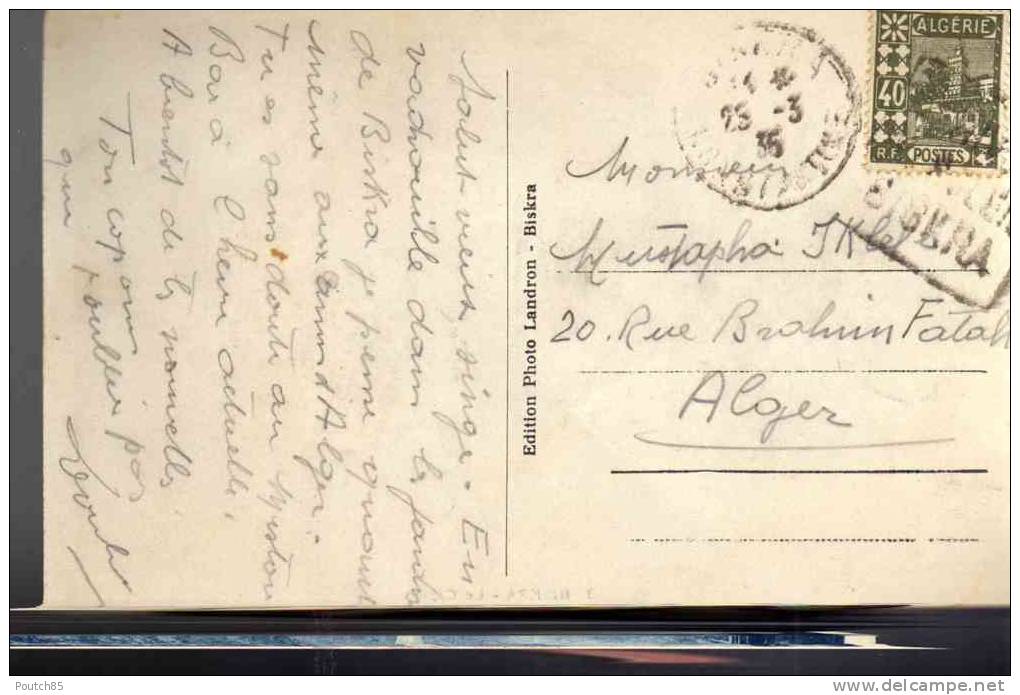 Salut vieux singe. En
vadrouille dans les jardins
de Biskra je pense quand
même aux d'Alger.
Tu es sans doute au
Bar à l'heure actuelle.
A bientôt de tes nouvelles
Ton copain
qui t'oublie pas
Edition Photo Landron - Biskra
ALGÉRIE
40
R.F. POSTES
25 -3
35
CONSTANTINE
BISKRA
Monsieur
Mustapha
20. Rue Brahim Fatah
Alger
Poutch85
www.delcampe.net